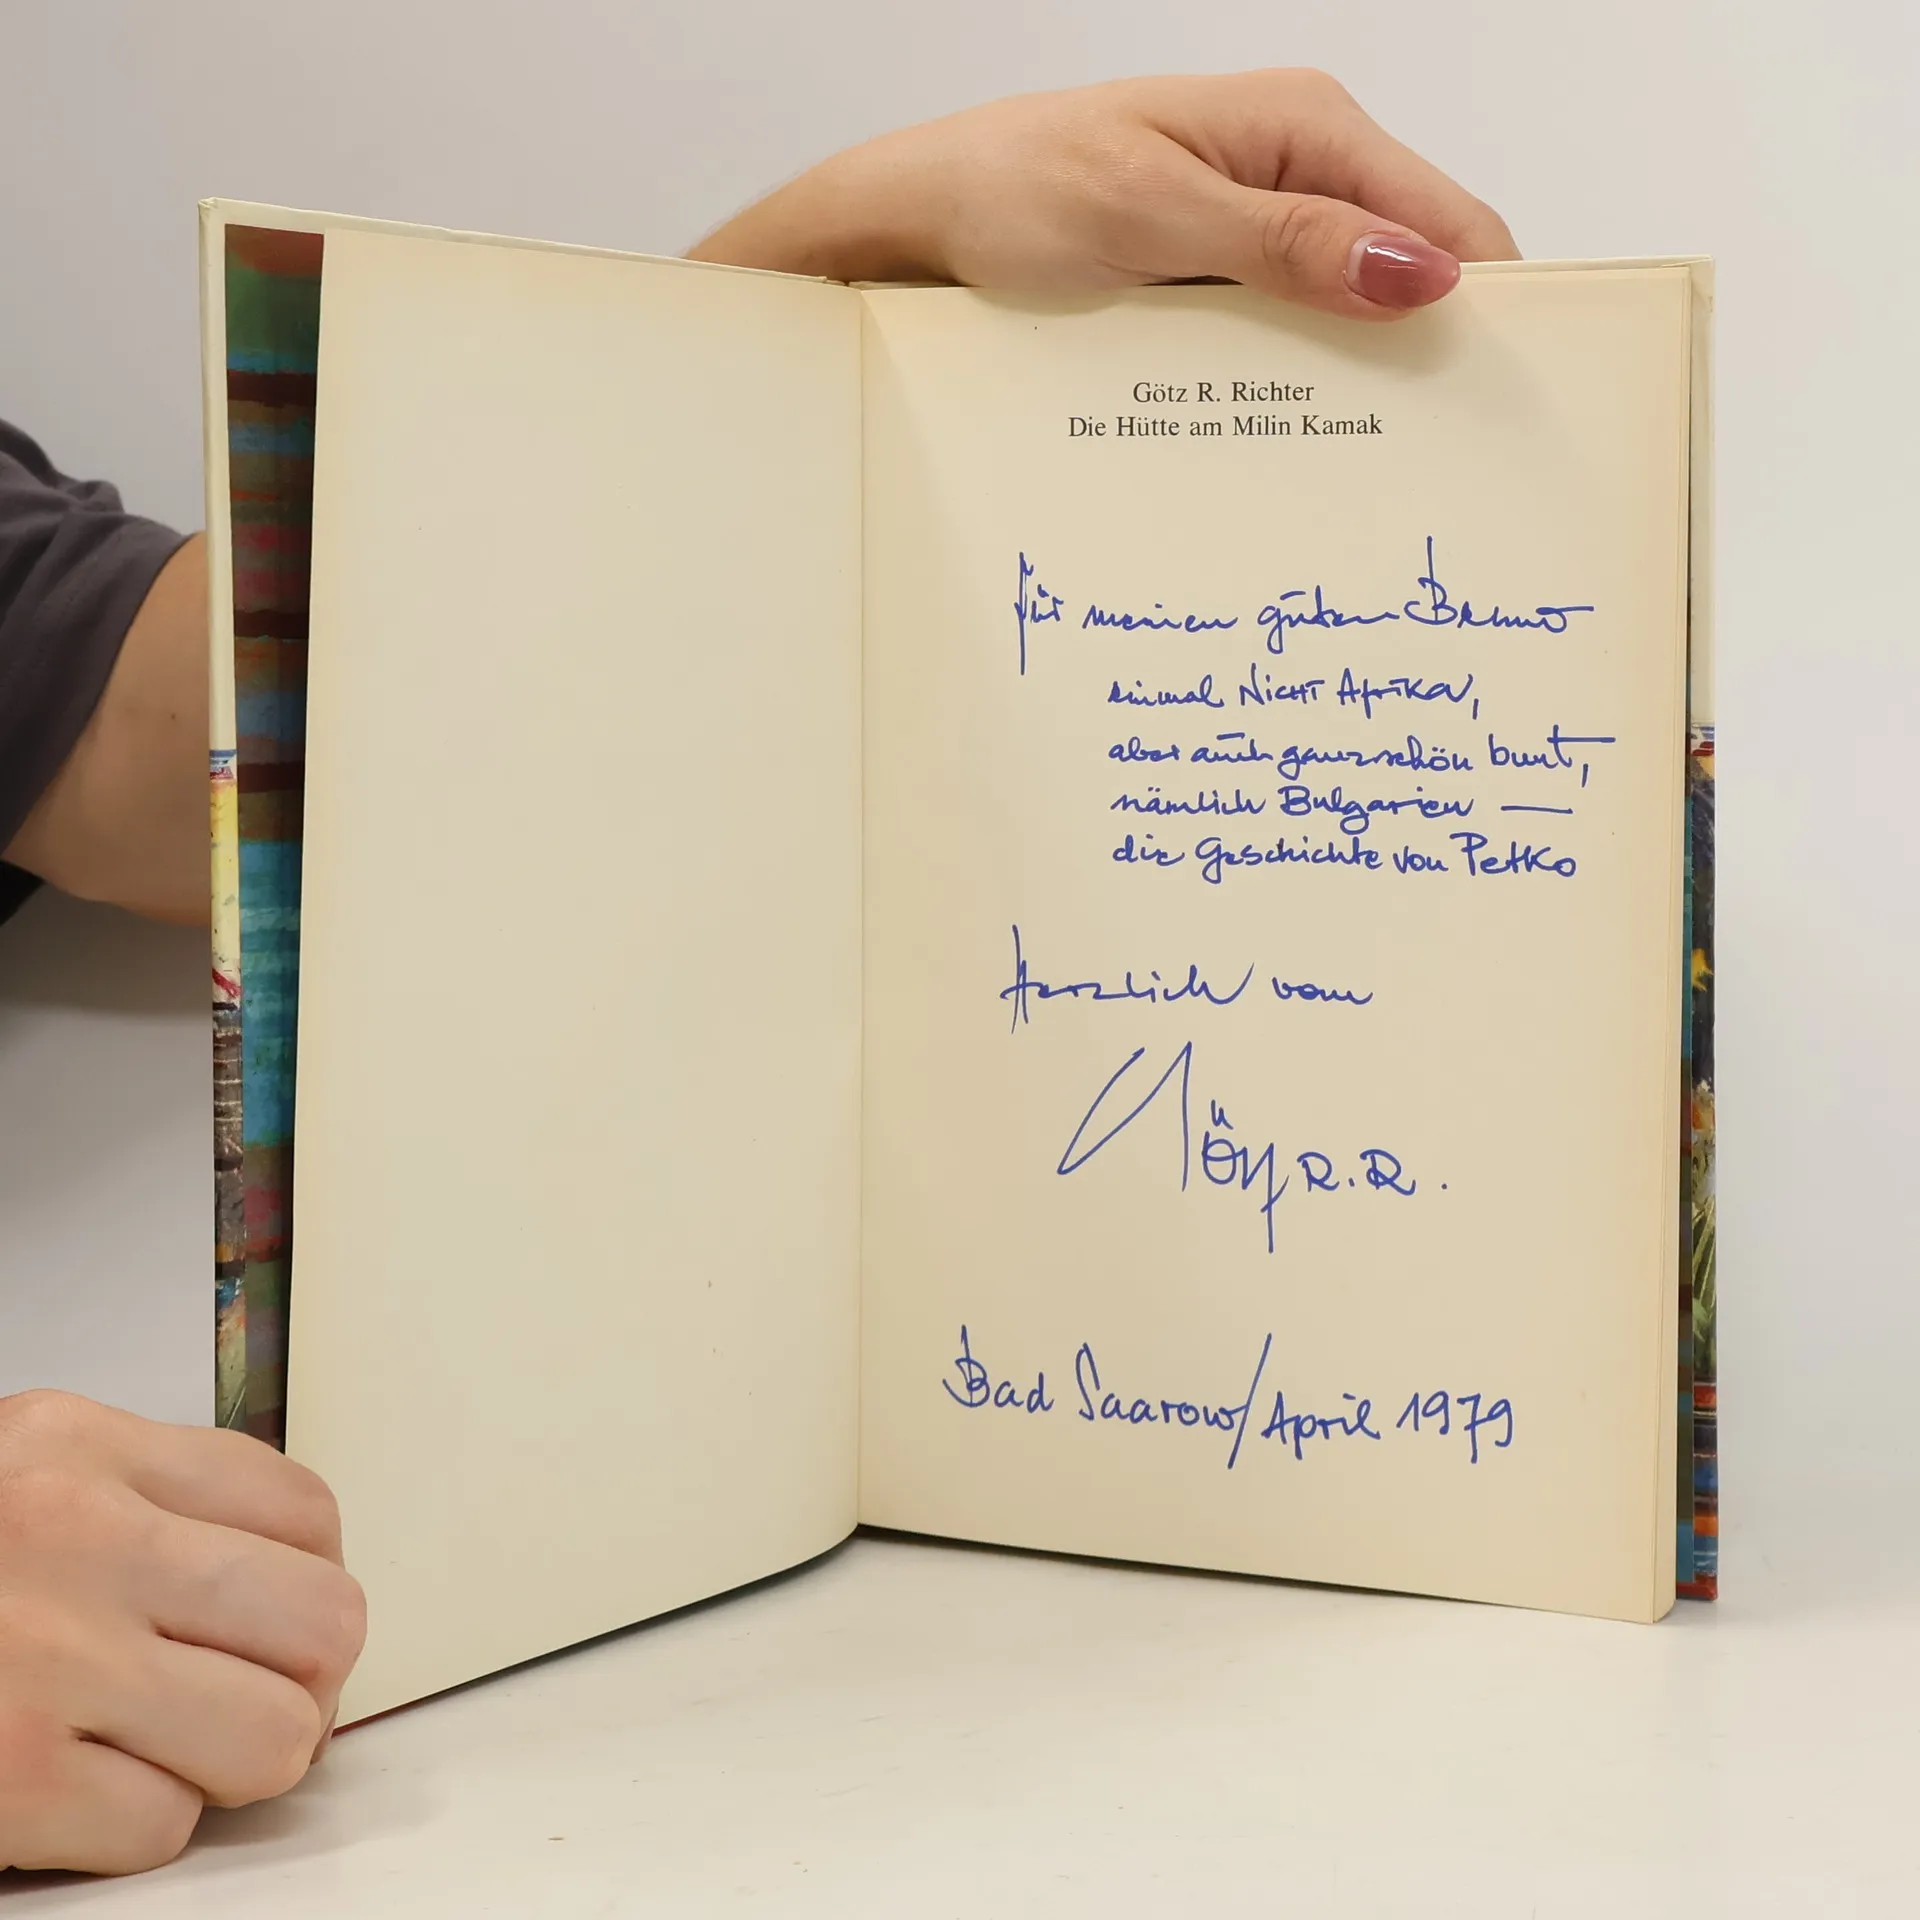 Götz R. Richter
Die Hütte am Milin Kamak
Für meinen guten Benno
einmal Nicht Afrika,
aber auch ganz schön bunt,
nämlich Bulgarien —
die Geschichte von Petko
Herzlich vom
Götz R. R.
Bad Saarow/April 1979